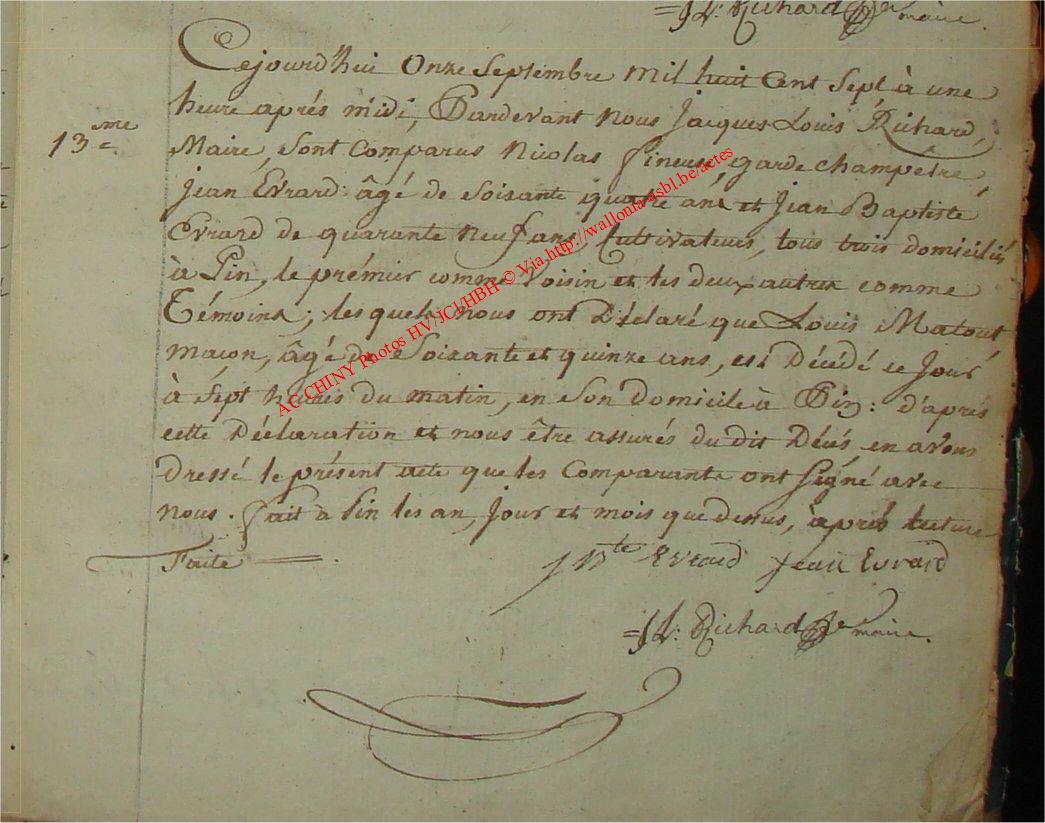 = JL: Richard maire.
Cejourd'hui Onze Septembre mil huit Cent Sept à une
13me heure aprés midi, Pardevant Nous Jacques Louis Richard,
Maire, Sont Comparus Nicolas garde champetre,
Jean Evrard âgé de Soixante quatre ans et Jean Baptiste
Evrard de quarante Neuf ans, Cultivateurs, tous trois domiciliés
à Pin, le prémier comme Voisin et les deux autres comme
Témoins; les quels nous ont Déclaré que Louis Matout
Maçon, âgé de Soixante et quinze ans, est Décédé ce Jour
à Sept heures du matin, en Son Domicile à Pin: d'aprés
cette Déclaration et nous être assurés du dit Décés en avons
Dressé le présent acte que les Comparants ont Signé avec
Nous. fait à Pin les an, Jour et mois que dessus, àprés lecture
Faite
J Bte Evrard Jean Evrard
= JL: Richard maire.
AC CHINY Photos HV/JCl/HBH © Via http://wallonia-asbl.be/actes